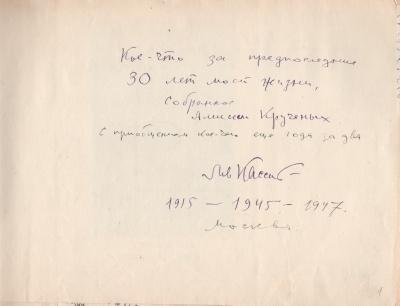 Кое-что за предпоследние
30 лет моей жизни,
собранное
Алексеем Крученых
с приобщением кое-чего еще года за два
Лев Кассиль
1915 — 1945 — 1947.
Москва.
1